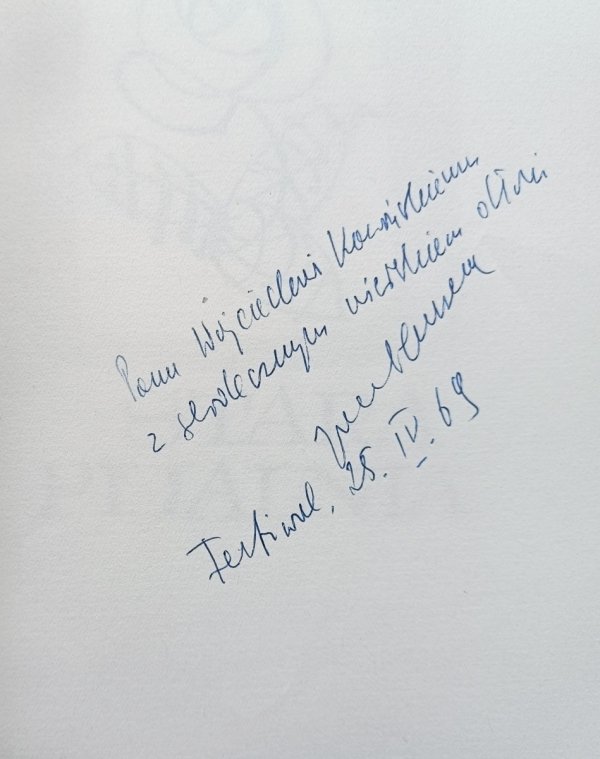 Panu Wojciechowi
z serdecznym uściskiem dłoni
Festiwal, 25. IV. 69